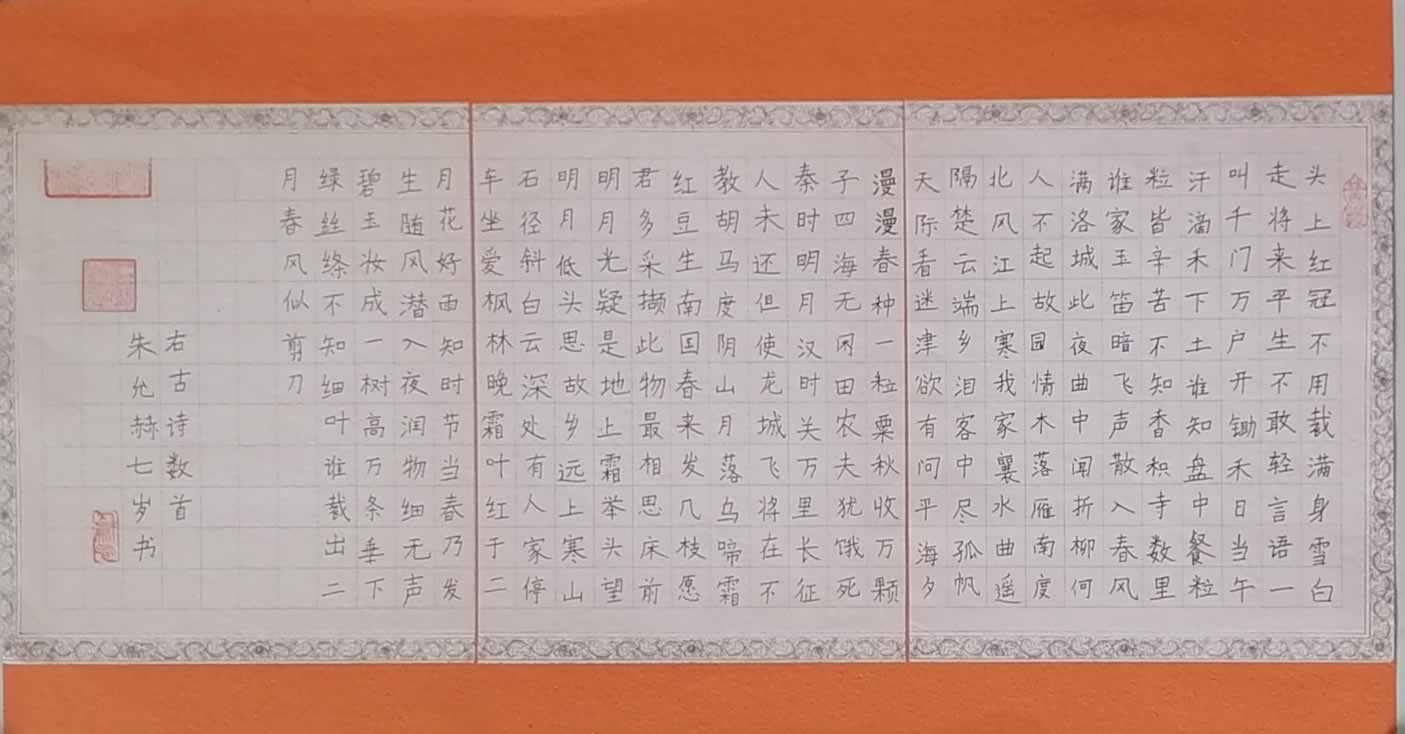 头上红冠不用裁满身雪白
走将来平生不敢轻言语一
叫千门万户开锄禾日当午
汗滴禾下土谁知盘中餐粒
粒皆辛苦不知香积寺数里
谁家玉笛暗飞声散入春风
满洛城此夜曲中闻折柳何
人不起故园情木落雁南度
北风江上寒我家襄水曲遥
隔楚云端乡泪客中尽孤帆
天际看迷津欲有问平海夕
漫漫春种一粒粟秋收万颗
子四海无闲田农夫犹饿死
秦时明月汉时关万里长征
人未还但使龙城飞将在不
教胡马度阴山月落乌啼霜
红豆生南国春来发几枝愿
君多采撷此物最相思床前
明月光疑是地上霜举头望
明月低头思故乡远上寒山
石径斜白云深处有人家停
车坐爱枫林晚霜叶红于二
月花好雨知时节当春乃发
生随风潜入夜润物细无声
碧玉妆成一树高万条垂下
绿丝绦不知细叶谁裁出二
月春风似剪刀
右古诗数首
朱允赫七岁书